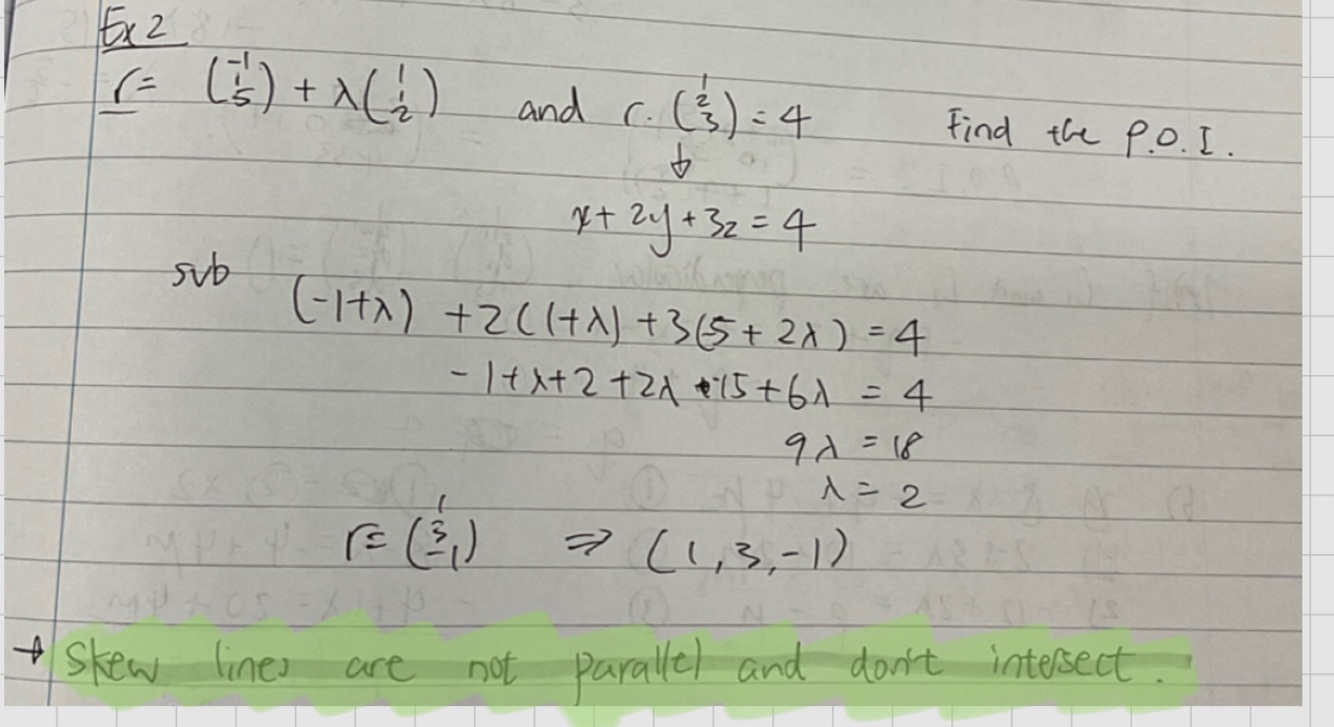 Ex 2
r = (-1 1 5) + λ(1 1 2) and r. (1 2 3) = 4 Find the P.O.I.
↓
x + 2y + 3z = 4
sub
(-1+λ) + 2(1+λ) + 3(5 + 2λ) = 4
-1 + λ + 2 + 2λ 15 + 6λ = 4
9λ = 18
λ = 2
r = (1 3 -1) ⇒ (1, 3, -1)
→ Skew lines are not parallel and don't intersect.